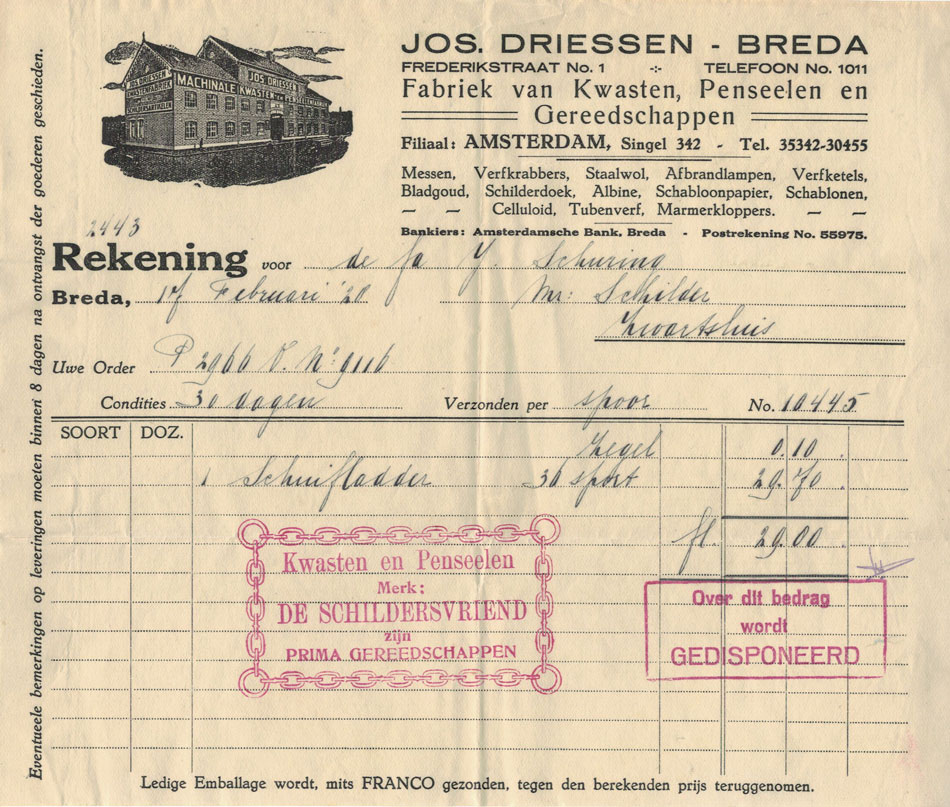 JOS. DRIESSEN - BREDA
FREDERIKSTRAAT No. 1 -:- TELEFOON No. 1011
Fabriek van Kwasten, Penseelen en
Gereedschappen
Filiaal: AMSTERDAM, Singel 342 - Tel. 35342-30455
Messen, Verfkrabbers, Staalwol, Afbrandlampen, Verfketels,
Bladgoud, Schilderdoek, Albine, Schabloonpapier, Schablonen,
— — Celluloid, Tubenverf, Marmerkloppers. — —
Bankiers: Amsterdamsche Bank, Breda - Postrekening No. 55975.
JOS. DRIESSEN
JOS. DRIESSEN
MACHINALE KWASTEN EN PENSEELENFABRIEK
2443
Rekening voor de fa J. Schuring
Breda, 17 Februari '28 Mr: Schilder
Zwartsluis
Uwe Order P 2966 O. No 9116
Condities 30 dagen Verzonden per spoor No. 10445
SOORT DOZ.
Zegel 0.10
1 Schuifladder 30 sport
fl. 29.00
Kwasten en Penseelen
Merk:
DE SCHILDERSVRIEND
zijn
PRIMA GEREEDSCHAPPEN
Over dit bedrag
wordt
GEDISPONEERD
Ledige Emballage wordt, mits FRANCO gezonden, tegen den berekenden prijs teruggenomen.
Eventueele bemerkingen op leveringen moeten binnen 8 dagen na ontvangst der goederen geschieden.